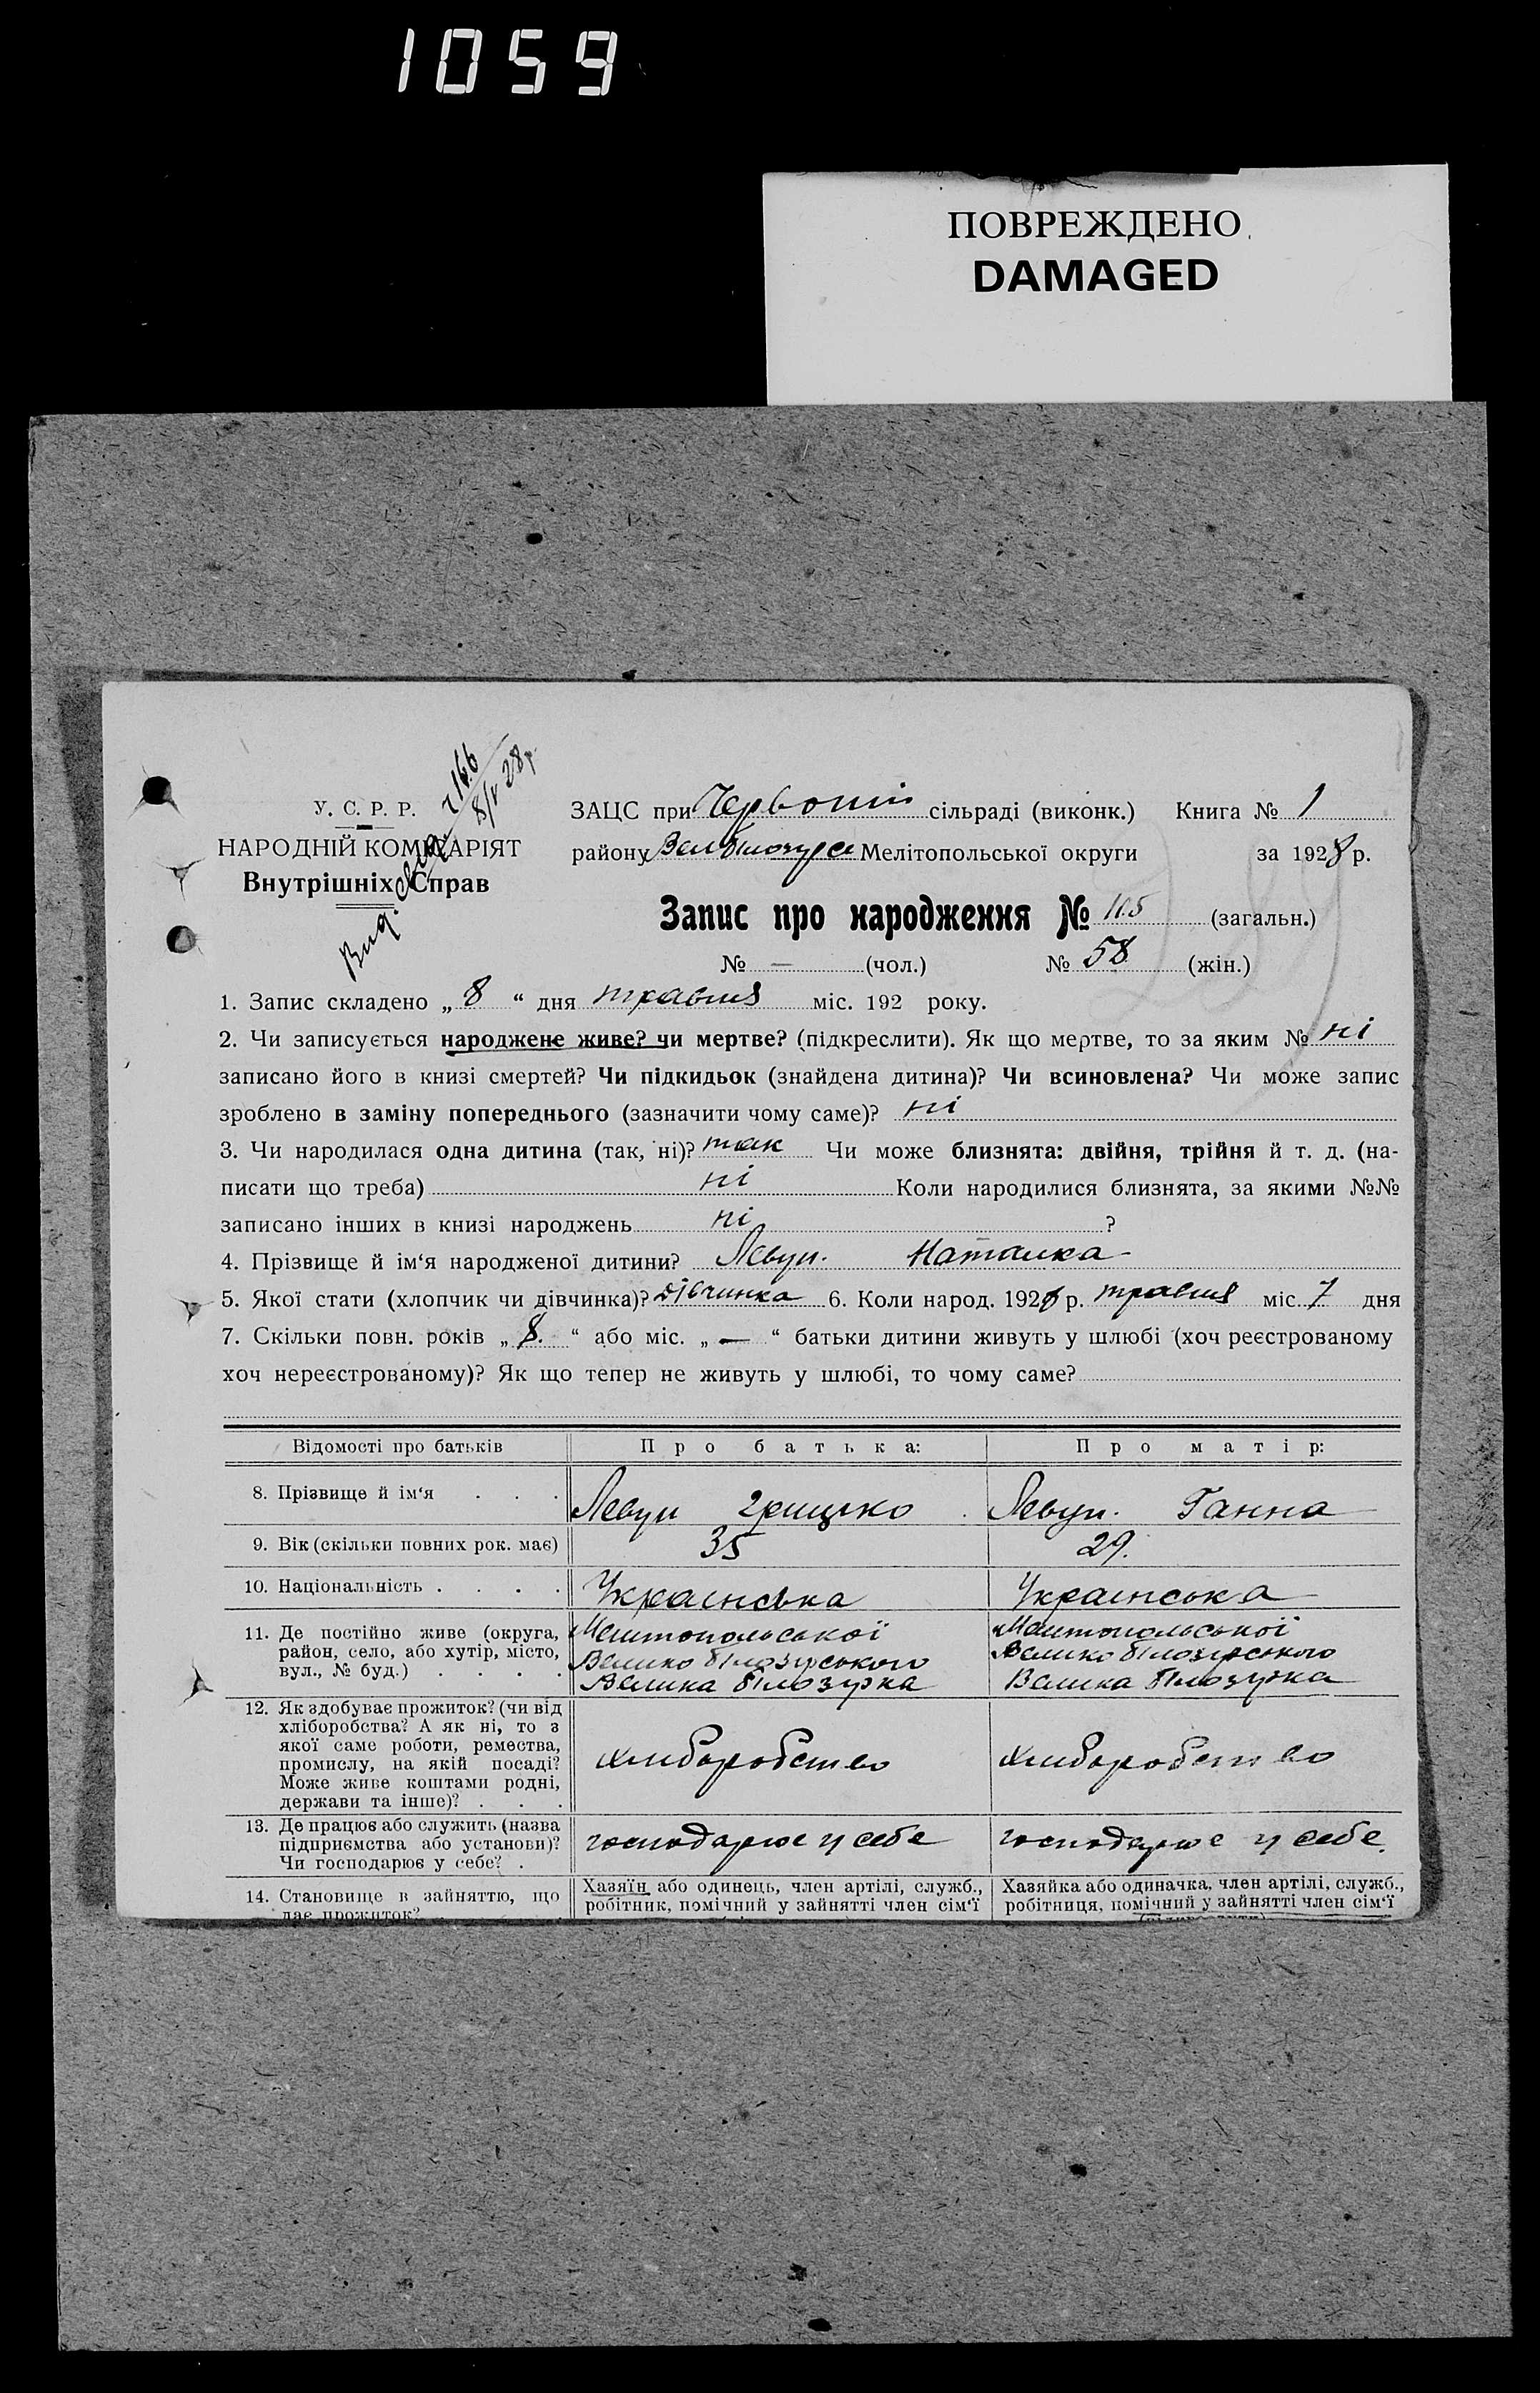 1059
ПОВРЕЖДЕНО
DAMAGED
Вид. 166
8/V 28р
У. С. Р. Р.
НАРОДНІЙ КОМІСАРІЯТ
Внутрішніх Справ
ЗАЦС при Червоній сільраді (виконк.) Книга № 1
району Мелітопольської округи за 1928 р.
Запис про народження № 115 (загальн.)
№ — (чол.) № 58 (жін.)
289
1. Запис складено „ 8 “ дня травня міс. 192 року.
2. Чи записується народжене живе? чи мертве? (підкреслити). Як що мертве, то за яким № ні
записано його в книзі смертей? Чи підкидьок (знайдена дитина)? Чи всиновлена? Чи може запис
зроблено в заміну попереднього (зазначити чому саме)? ні
3. Чи народилася одна дитина (так, ні)? так Чи може близнята: двійня, трійня й т. д. (на-
писати що треба) ні Коли народилися близнята, за якими №№
записано інших в книзі народжень ні ?
4. Прізвище й ім‘я народженої дитини? Левун. Наталка
5. Якої стати (хлопчик чи дівчинка)? дівчинка 6. Коли народ. 1928 р. травня міс. 7 дня
7. Скільки повн. років „ 8. “ або міс. „ — “ батьки дитини живуть у шлюбі (хоч реєстрованому
хоч нереєстрованому)? Як що тепер не живуть у шлюбі, то чому саме?
Відомості про батьків Про батька: Про матір:
8. Прізвище й ім‘я . . . Левун Грицько Левун. Ганна
9. Вік (скільки повних рок. має) 35 29.
10. Національність . . . . Українська Українська
11. Де постійно живе (округа, Мелітопольської Мелітопольської
район, село, або хутір, місто, Велико Білозірського Велико Білозірського
вул., № буд.) . . . . Велика Білозірка Велика Білозірка
12. Як здобуває прожиток? (чи від
хліборобства? А як ні, то з
якої саме роботи, ремества,
промислу, на якій посаді? хліборобство хліборобство
Може живе коштами родні,
держави та інше)? . . .
13. Де працює або служить (назва
підприємства або установи)? господарює у себе господарює у себе.
Чи господарює у себе? .
14. Становище в зайняттю, що Хазяїн або одинець, член артілі, служб., Хазяйка або одиначка, член артілі, служб.,
дає прожиток? робітник, помічний у зайнятті член сім‘ї робітниця, помічний у зайнятті член сім‘ї